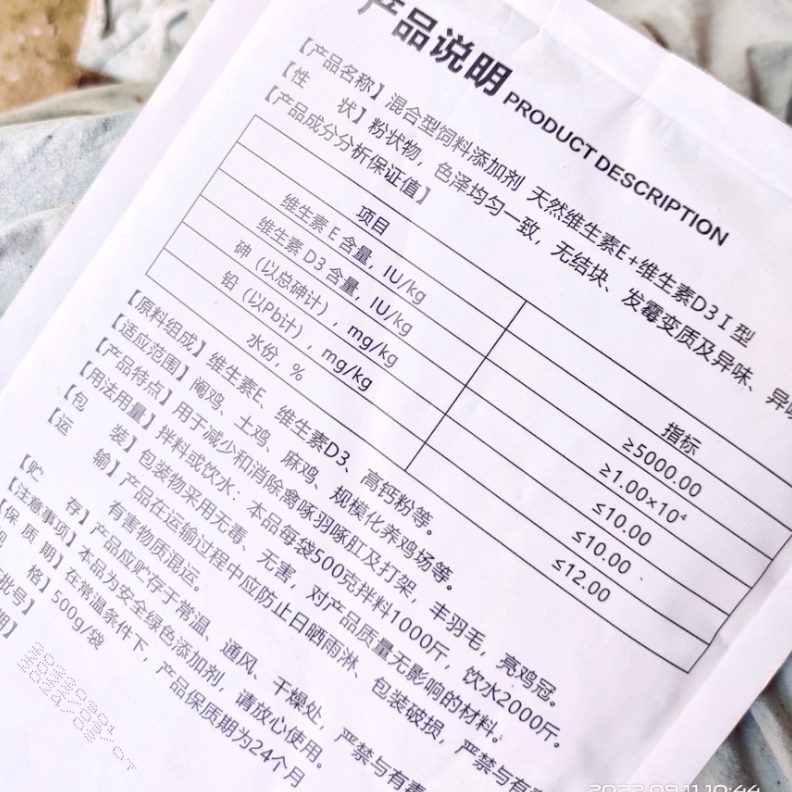 产品说明 PRODUCT DESCRIPTION
【产品名称】混合型饲料添加剂 天然维生素E+维生素D3Ⅰ型
【性 状】粉状物，色泽均匀一致，无结块、发霉变质及异味、异
【产品成分分析保证值】
项目 指标
维生素E含量，IU/kg ≥5000.00
维生素D3含量，IU/kg ≥1.00×10⁴
砷（以总砷计），mg/kg ≤10.00
铅（以Pb计），mg/kg ≤10.00
水份，% ≤12.00
【原料组成】维生素E、维生素D3、高钙粉等。
【适应范围】阉鸡、土鸡、麻鸡、规模化养鸡场等。
【产品特点】用于减少和消除禽啄羽啄肛及打架，丰羽毛，亮鸡冠。
【用法用量】拌料或饮水：本品每袋500克拌料1000斤，饮水2000斤。
【包 装】包装物采用无毒、无害，对产品质量无影响的材料。
【运 输】产品在运输过程中应防止日晒雨淋、包装破损，严禁与有
有害物质混运。
【贮 存】产品应贮存于常温、通风、干燥处，严禁与有毒
【注意事项】本品为安全绿色添加剂，请放心使用。
保 质 期】在常温条件下，产品保质期为24个月
格】500g/袋
批号】
期】
2022.09.11 10:44